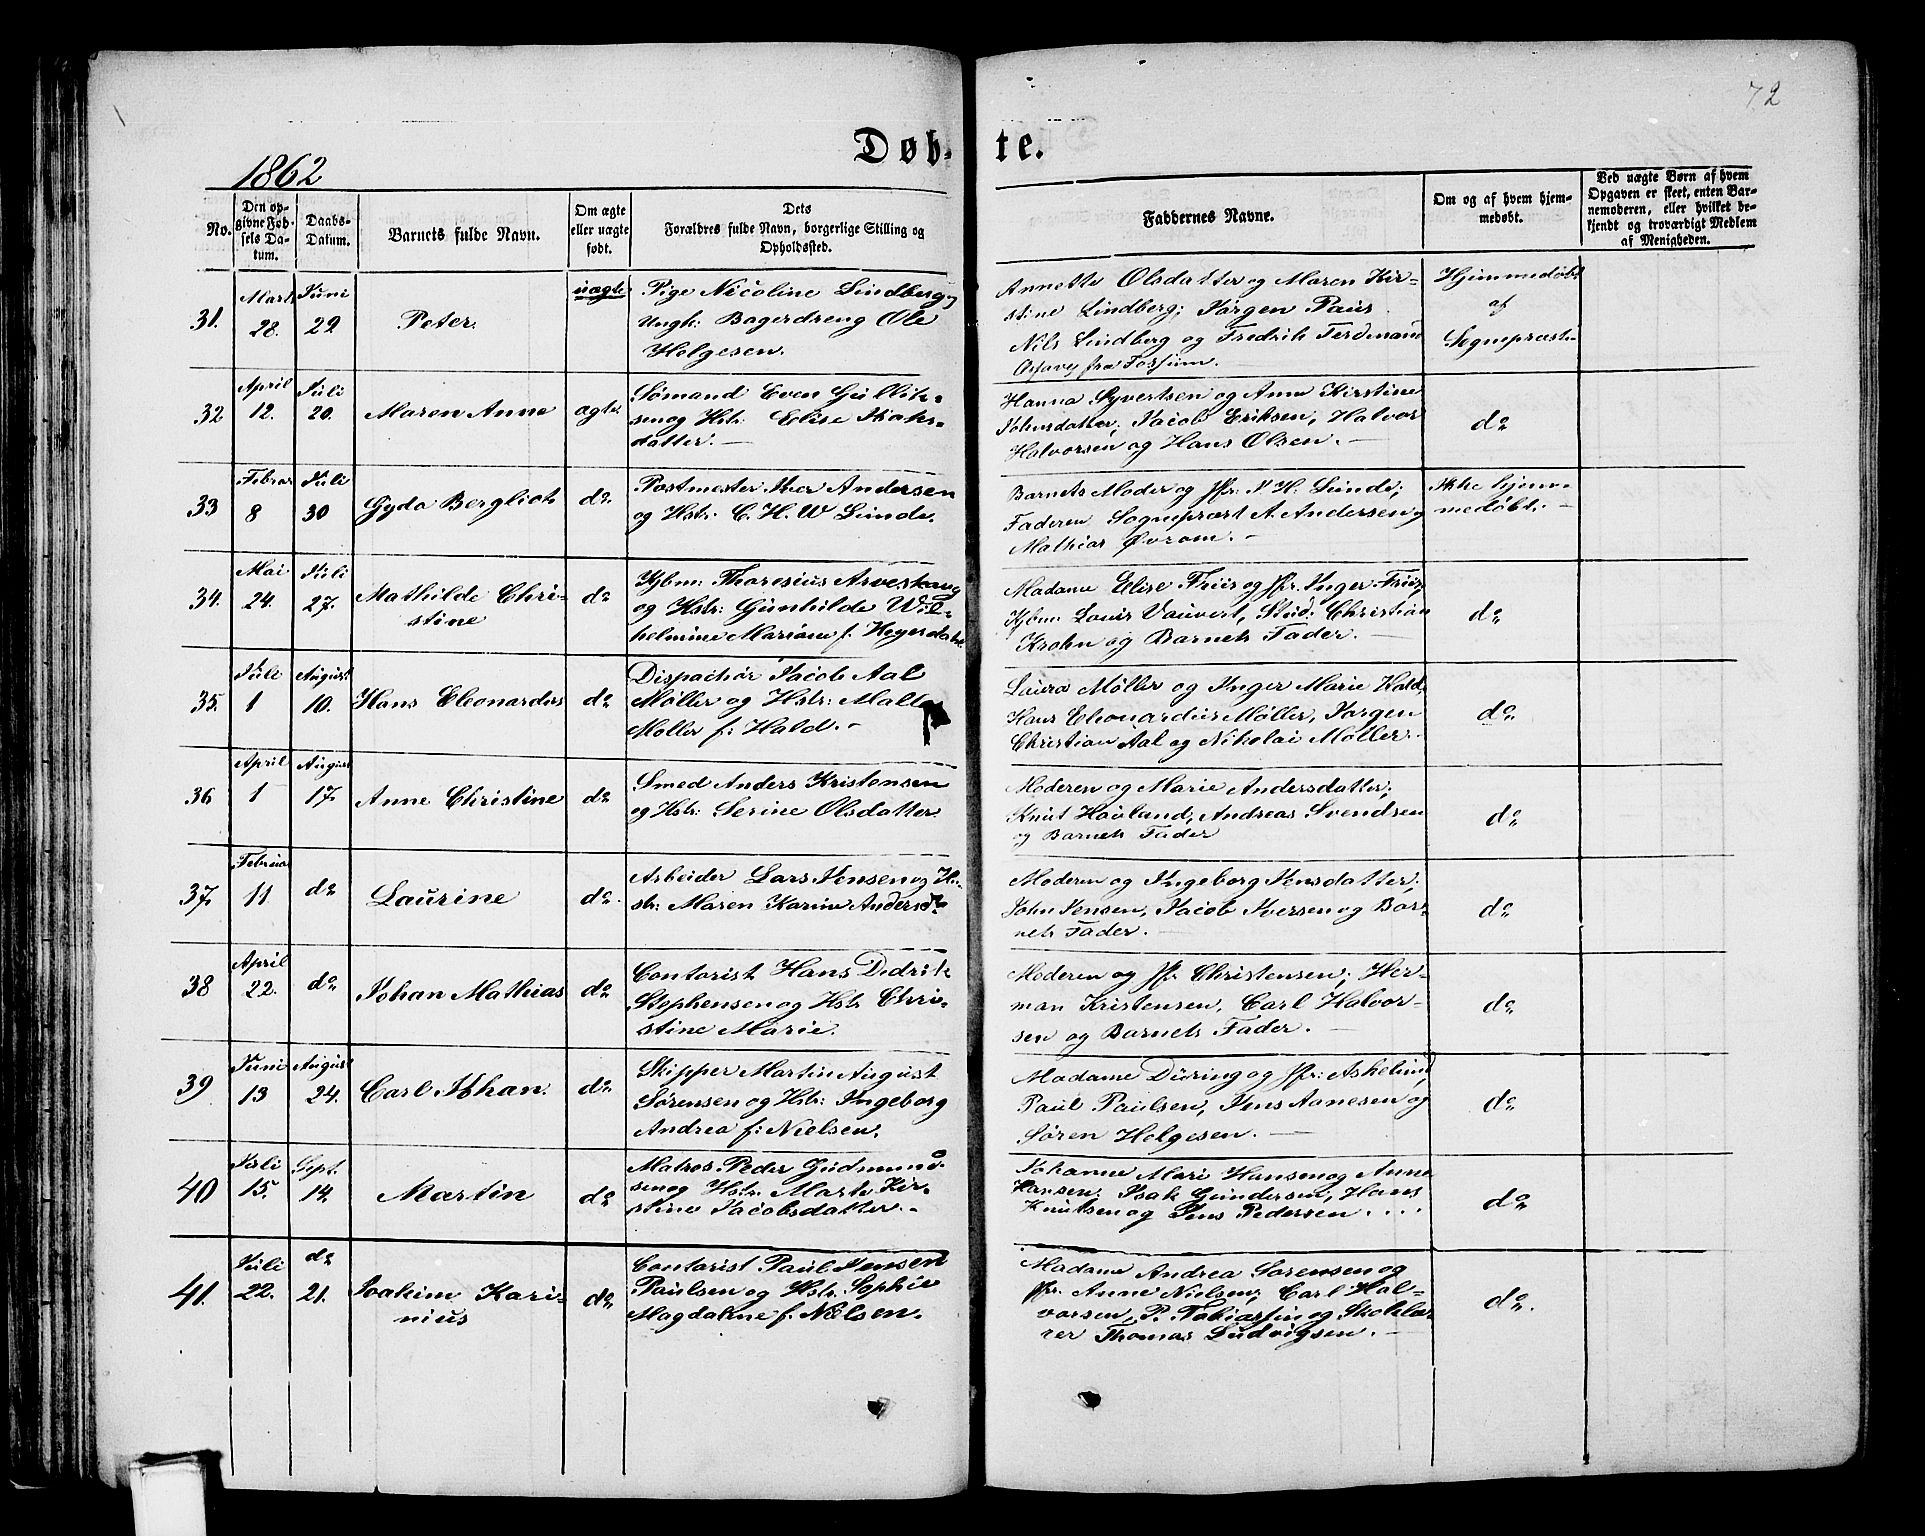 72
Døb-te.
1862
No.
Den op-
givne Fød-
sels Da-
tum.
Daabs-
Datum.
Barnets fulde Navn.
Om ægte
eller uægte
født.
Dets
Forældres fulde Navn, borgerlige Stilling og
Opholdssted.
Faddernes Navne.
Om og af hvem hjem-
medøbt.
Ved uægte Børn af hvem
Opgaven er skeet, enten Bar-
nemoderen, eller hvilket be-
kjendt og troværdigt Medlem
af Menigheden.
31.
Marts
28.
Juni
29
Peter.
uægte
Pige Nicoline Lindberg,
Ungk: Bagerdreng Ole
Holgesen.
Annette Olsdatter og Maren Kir-
stine Lindberg; Jørgen Paus
Nils Lindberg og Fredrik Ferdinand
fra Fossum.
Hjemmedøbt
af
Sognepræst
32
April
12.
Juli
20.
Maren Anne
ægte
Sømand Even Gulliks-
sen og Hstr: Elise Isaks-
datter.—
Hanna Syvertsen og Anne Kirstine
Johnsdatter, Jacob Eriksen, Halvor
Halvorsen og Hans Olsen.—
do
33
Februar
8
Juli
30
Gyda Bergliot
do.
Postmester Iver Andersen
og Hstr: C. H. W Lunde.
Barnets Moder og Jfr: N. H. Lunde;
Faderen Sognepræst A. Andersen og
Mathias Øvrom.—
Ikke hjem-
medøbt.—
34.
Mai
24.
Juli
27.
Mathilde Chri-
stine
do
Kjbm: Tharesius Arveskoug
og Hstr: Gunhilde Wil-
helmine Mariane f. Heyerdahl
Madame Elise Friis og Jfr. Inger Friis,
Kjbm Louis Vauvert, Stud: Christian
Krohn og Barnets Fader.—
do
35.
Juli
1
August
10.
Hans Eleonardus
do
Dispachør Jacob Aal
Møller og Hstr: Malte
Møller f: Hald.—
Laura Møller og Inger Marie Hald,
Hans Eleonardus Møller, Jørgen
Christian Aal og Nikolai Møller.
do.
36
April
1
August
17.
Anne Christine
do
Smed Anders Kristensen
og Hstr: Serine Olsdatter
Moderen og Marie Andersdatter;
Knut Houland, Andreas Svendsen
og Barnets Fader
do
37
Februar
11
do
Laurine
do.
Arbeider Lars Jensen og H-
str: Maren Karine Andersdr
Moderen og Ingeborg Jensdatter;
John Jensen, Jacob Iversen og Bar-
nets Fader.—
do
38
April
22.
do
Johan Mathias
do
Contorist Hans Didrik
Stephensen og Hstr Chri-
stine Marie.
Moderen og Jfr. Christensen; Her-
man Kristensen, Carl Halvor-
sen og Barnets Fader.—
do
39
Juni
13
August
24.
Carl Johan.
do
Skipper Martin August
Sørensen og Hstr: Ingeborg
Andrea f: Nielsen.
Madame Düring og Jfr: Askelund,
Paul Paulsen, Jens Aanesen og
Søren Holgesen.—
do
40
Juli
15.
Sept.
14.
Martin
do
Matros Peder Gudmund-
sen og Hstr. Marte Kir-
stine Jacobsdatter.-
Johanne Mari Hansen og Anne
Hansen: Isak Gundersen, Hans
Knutsen og Jens Pedersen....
do
41.
Juli
22.
do
21.
Joakim Kari-
nius
do
Contorist Paul Jensen
Paulsen og Hstr. Sophie
Magdalene f. Nielsen.
Madame Andrea Sørensen og
Jfr. Anne Nielsen; Carl Hal-
vorsen, P. Tobiassen og Skolelæ-
rer Thomas Ludvigsen.—
do.